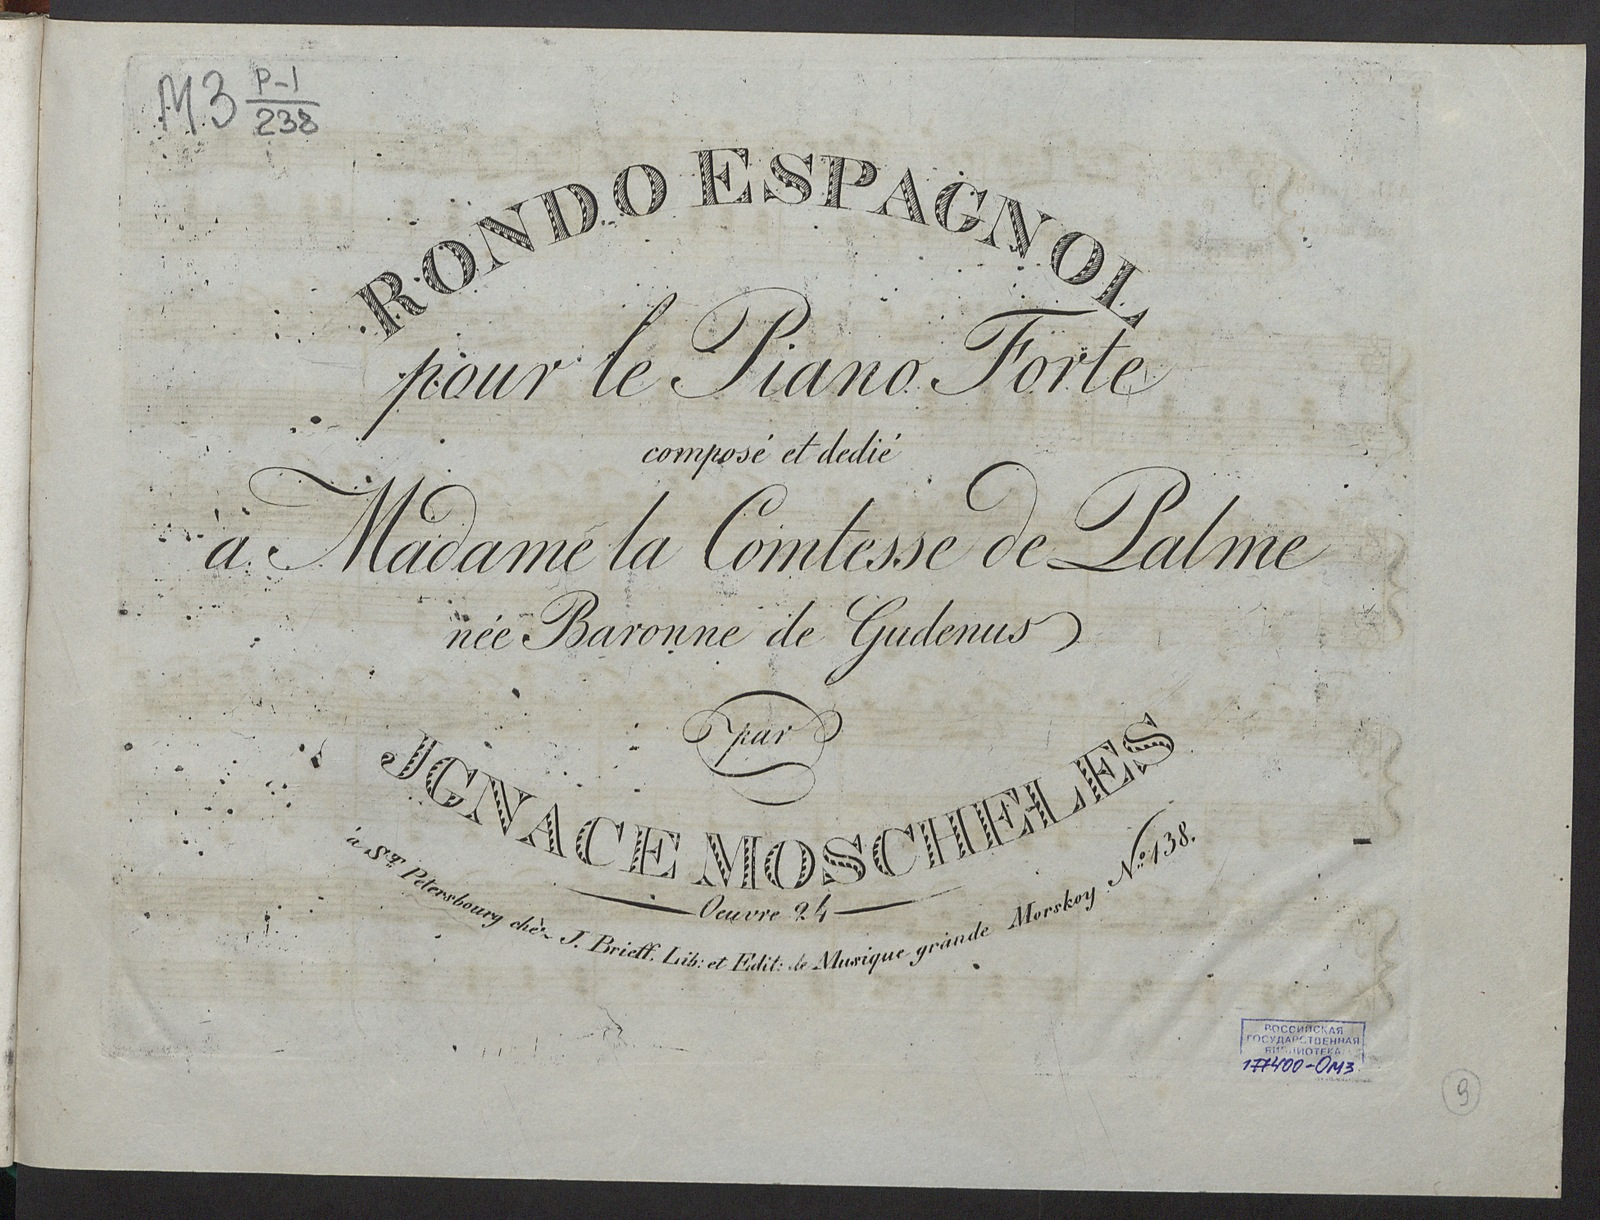 МЗ P-1/238
RONDO ESPAGNOL
pour le Piano Forte
composé et dedié
à Madame la Comtesse de Palme
née Baronne de Gudenus
par
JGNACE MOSCHELES
Oeuvre 24
à St. Petersbourg chèz J. Brieff. Lib: et Edit: de Musique grande Morskoy No. 138.
РОССИЙСКАЯ
ГОСУДАРСТВЕННАЯ
БИБЛИОТЕКА
177400-ОМЗ
9